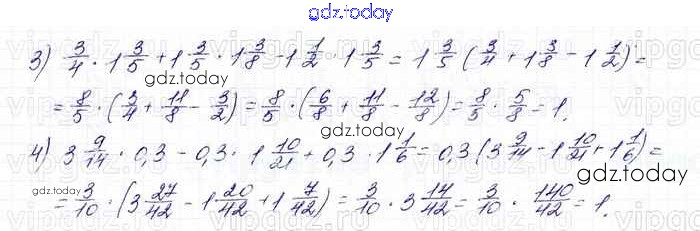 gdz.today
3) 3/4 · 1 3/5 + 1 3/5 · 1 3/8 - 1 1/2 · 1 3/5 = 1 3/5 (3/4 + 1 3/8 - 1 1/2) =
gdz.today
= 8/5 · (3/4 + 11/8 - 3/2) = 8/5 · (6/8 + 11/8 - 12/8) = 8/5 · 5/8 = 1.
gdz.today
4) 3 9/14 · 0,3 - 0,3 · 1 10/21 + 0,3 · 1 1/6 = 0,3 (3 9/14 - 1 10/21 + 1 1/6) =
gdz.today
gdz.today
= 3/10 · (3 27/42 - 1 20/42 + 1 7/42) = 3/10 · 3 14/42 = 3/10 · 140/42 = 1.
gdz.today